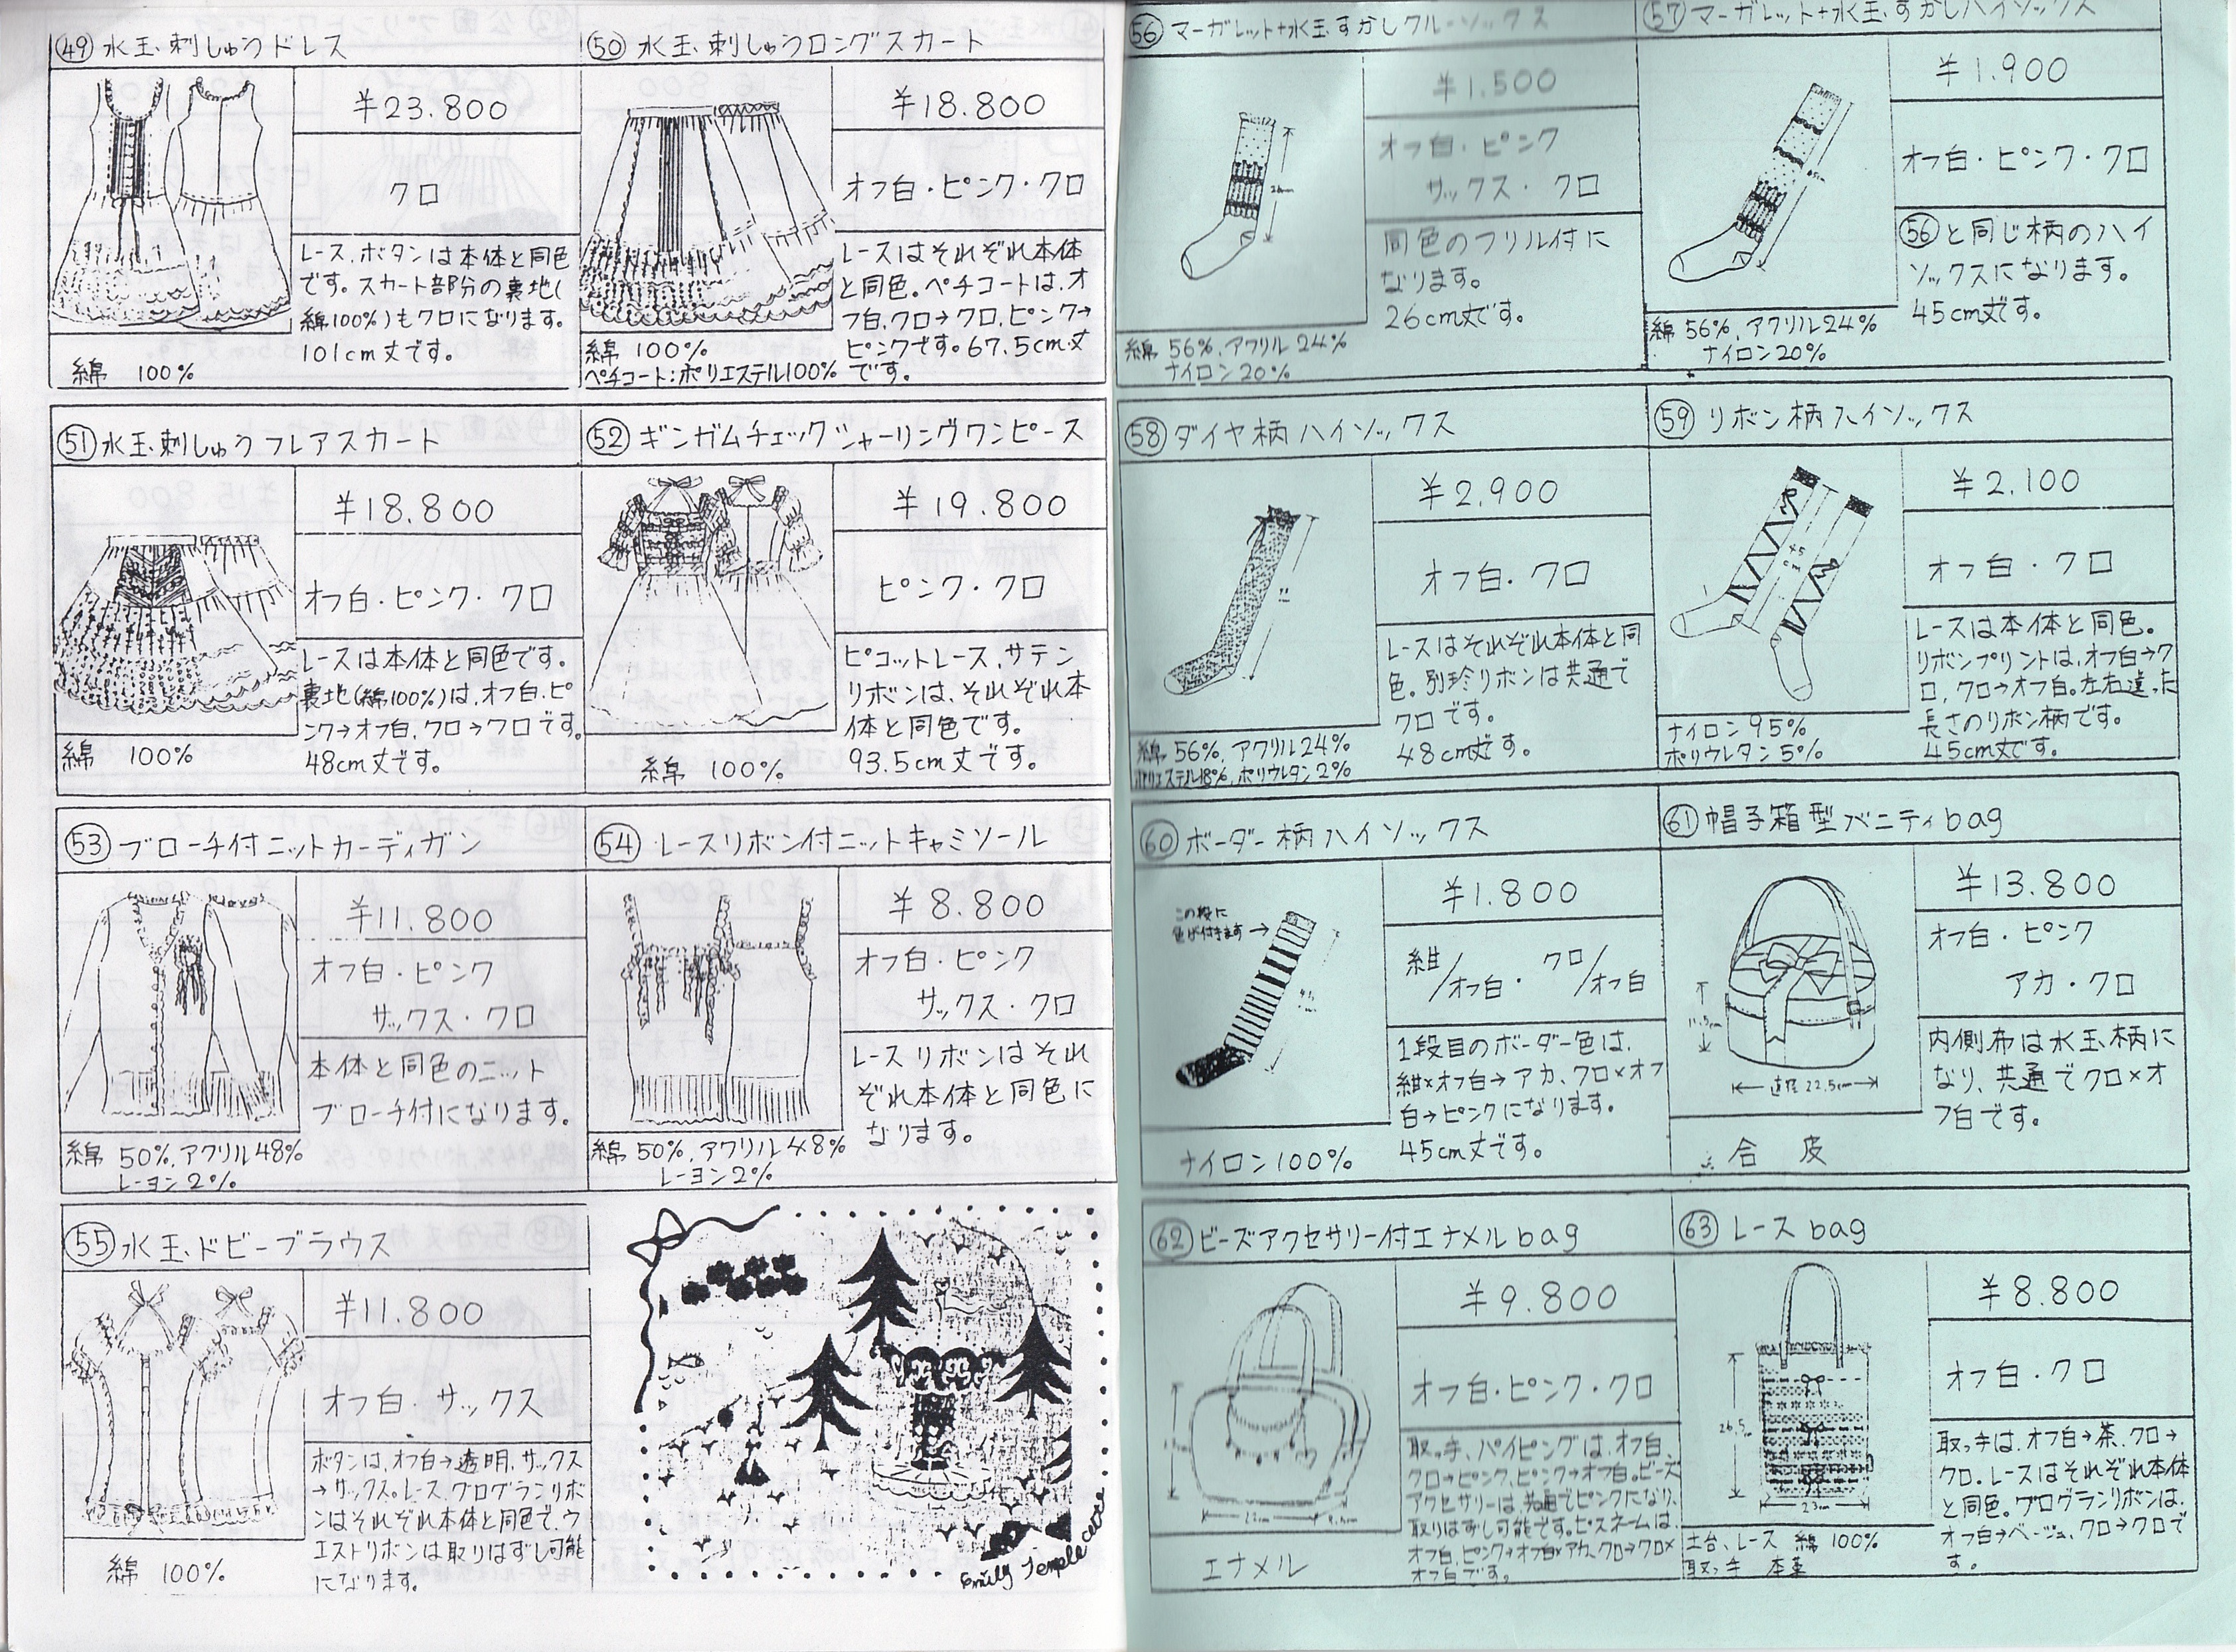 ㊾水玉刺しゅうドレス
¥23.800
クロ
レース、ボタンは本体と同色
です。スカート部分の裏地(
綿100%)もクロになります。
101cm丈です。
綿 100%
㊿水玉刺しゅうロングスカート
¥18.800
オフ白・ピンク・クロ
レースはそれぞれ本体
と同色。ペチコートは、オ
フ白、クロ→クロ、ピンク→
ピンクです。67.5cm丈
です。
綿 100%
ペチコート:ポリエステル100%
51 水玉刺しゅうフレアスカート
¥18.800
オフ白・ピンク・クロ
レースは本体と同色です。
裏地(綿100%)は、オフ白、ピ
ンク→オフ白、クロ→クロです。
48cm丈です。
綿 100%
52 ギンガムチェックシャーリングワンピース
¥19.800
ピンク・クロ
ピコットレース、サテン
リボンは、それぞれ本
体と同色です。
93.5cm丈です。
綿 100%
53 ブローチ付ニットカーディガン
¥11.800
オフ白・ピンク
サックス・クロ
本体と同色のニット
ブローチ付になります。
綿 50%、アクリル48%
レーヨン2%
54 レースリボン付ニットキャミソール
¥8.800
オフ白・ピンク
サックス・クロ
レースリボンはそれ
ぞれ本体と同色に
なります。
綿 50%、アクリル48%
レーヨン2%
55 水玉ドビーブラウス
¥11.800
オフ白・サックス
ボタンは、オフ白→透明、サックス
→サックス。レース、グログランリボ
ンはそれぞれ本体と同色で、ウ
エストリボンは取りはずし可能
になります。
綿 100%
Emily Temple cute
56 マーガレット+水玉すかしクルーソックス
¥1.500
オフ白・ピンク
サックス・クロ
同色のフリル付に
なります。
26cm丈です。
綿 56%、アクリル24%
ナイロン20%
57 マーガレット+水玉すかしハイソックス
¥1.900
オフ白・ピンク・クロ
56と同じ柄のハイ
ソックスになります。
45cm丈です。
綿 56%、アクリル24%
ナイロン20%
58 ダイヤ柄ハイソックス
¥2.900
オフ白・クロ
レースはそれぞれ本体と同
色。別珍リボンは共通で
クロです。
48cm丈です。
綿 56%、アクリル24%
ポリエステル18%、ポリウレタン2%
59 リボン柄ハイソックス
¥2.100
オフ白・クロ
レースは本体と同色。
リボンプリントは、オフ白→ク
ロ、クロ→オフ白。左右違った
長さのリボン柄です。
45cm丈です。
ナイロン95%
ポリウレタン5%
60 ボーダー柄ハイソックス
この段に
色が付きます→
¥1.800
紺/オフ白・クロ/オフ白
1段目のボーダー色は、
紺×オフ白→アカ、クロ×オフ
白→ピンクになります。
45cm丈です。
ナイロン100%
61 帽子箱型バニティbag
直径22.5cm
¥13.800
オフ白・ピンク
アカ・クロ
内側布は水玉柄に
なり、共通でクロ×オ
フ白です。
合 皮
62 ビーズアクセサリー付エナメルbag
¥9.800
オフ白・ピンク・クロ
取っ手、パイピングは、オフ白、
クロ→ピンク、ピンク→オフ白。ビーズ
アクセサリーは、共通でピンクになり、
取りはずし可能です。ピスネームは、
オフ白、ピンク→オフ白×アカ、クロ→クロ×
オフ白です。
エナメル
63 レースbag
26.5cm
23cm
¥8.800
オフ白・クロ
取っ手は、オフ白→茶、クロ→
クロ。レースはそれぞれ本体
と同色。グログランリボンは、
オフ白→ベージュ、クロ→クロで
す。
土台、レース 綿 100%
取っ手 本革